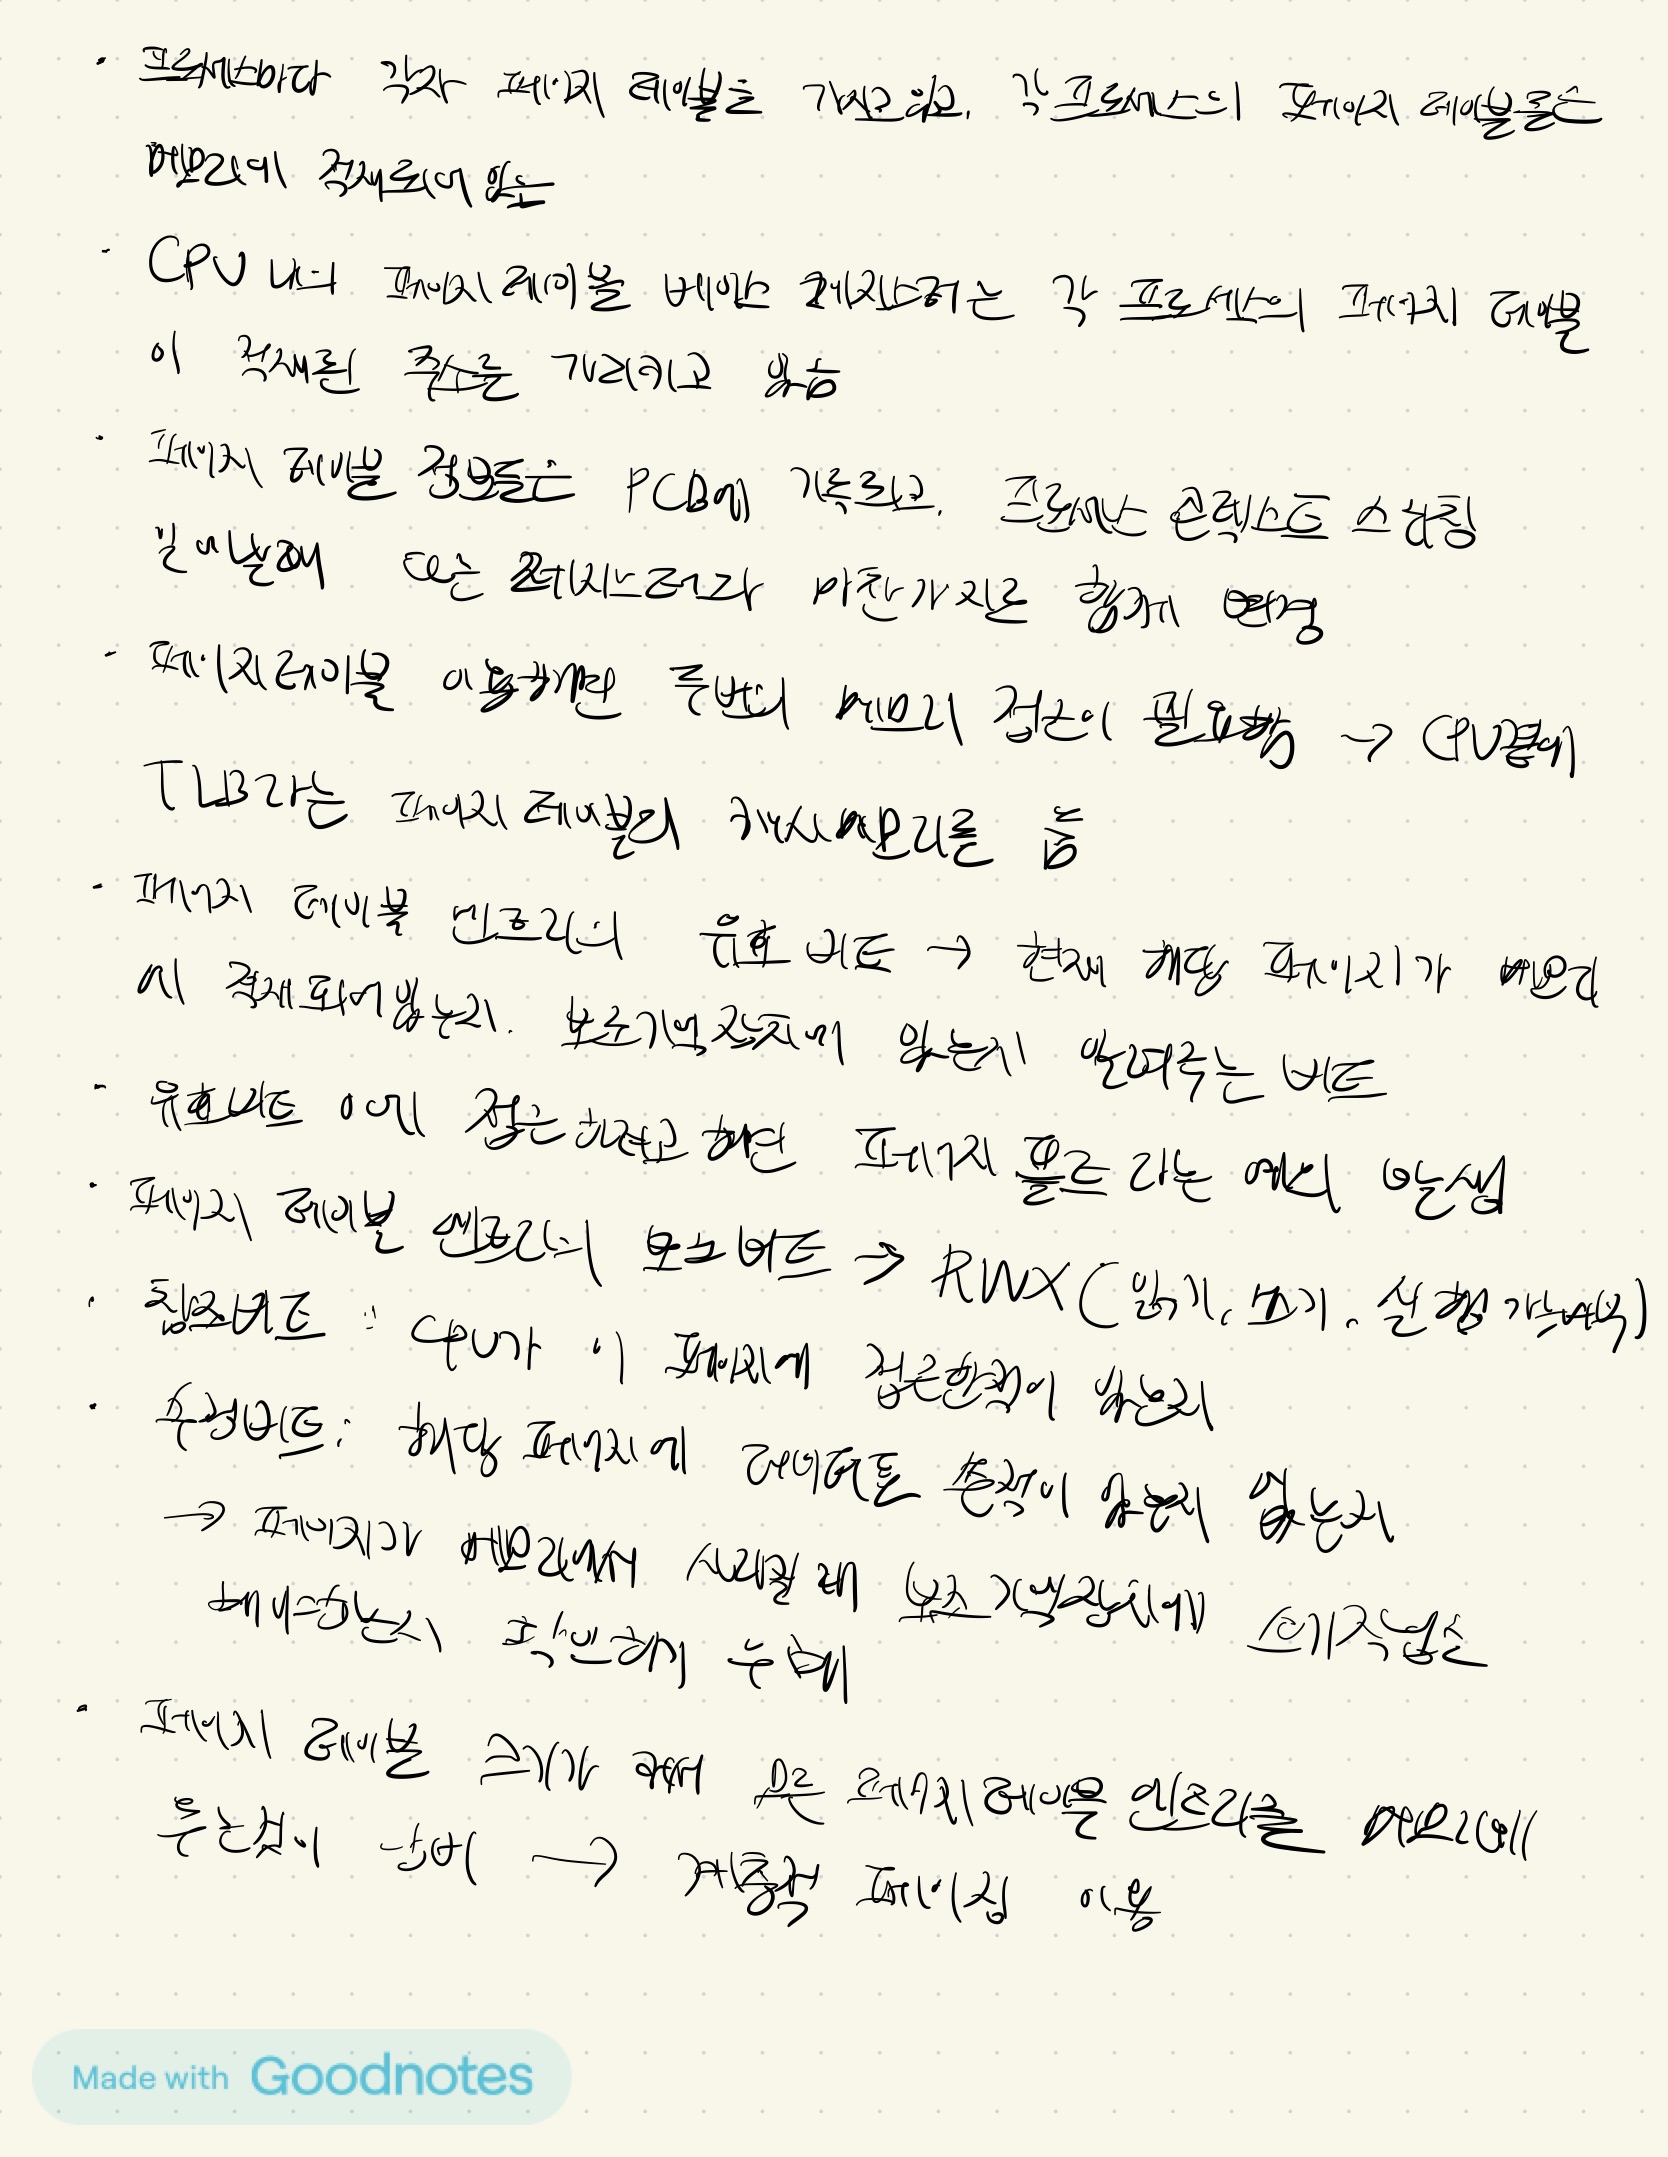 · 프로세스마다 각자 페이지 테이블을 가지고 있고, 각 프로세스의 페이지 테이블들은
메모리에 적재되어 있는
· CPU 내의 페이지 테이블 베이스 레지스터는 각 프로세스의 페이지 테이블
이 적재된 주소를 가리키고 있음
· 페이지 테이블 정보들은 PCB에 기록되고, 프로세스 콘텍스트 스위칭
일어날때 다른 레지스터와 마찬가지로 함께 변경
· 페이지 테이블 이용하면 두번의 메모리 접근이 필요함 → CPU곁에
TLB라는 페이지 테이블의 캐시메모리를 둠
- 페이지 테이블 엔트리의 유효 비트 → 현재 해당 페이지가 메모리
에 적재되어있는지, 보조기억장치에 있는지 알려주는 비트
- 유효비트 0에 접근하려고 하면 페이지 폴트 라는 예외 발생
· 페이지 테이블 엔트리의 보호 비트 → RWX (읽기, 쓰기, 실행 가능여부)
· 참조비트 : CPU가 이 페이지에 접근한적이 있는지
· 수정비트 : 해당 페이지에 데이터를 쓴적이 있는지 없는지
→ 페이지가 메모리에서 사라질 때 보조기억장치에 쓰기작업을
해야하는지 확인하기 위해
· 페이지 테이블 크기가 커서 모든 페이지 테이블 엔트리를 메모리에
두는것이 낭비 → 계층적 페이징 이용
Made with Goodnotes